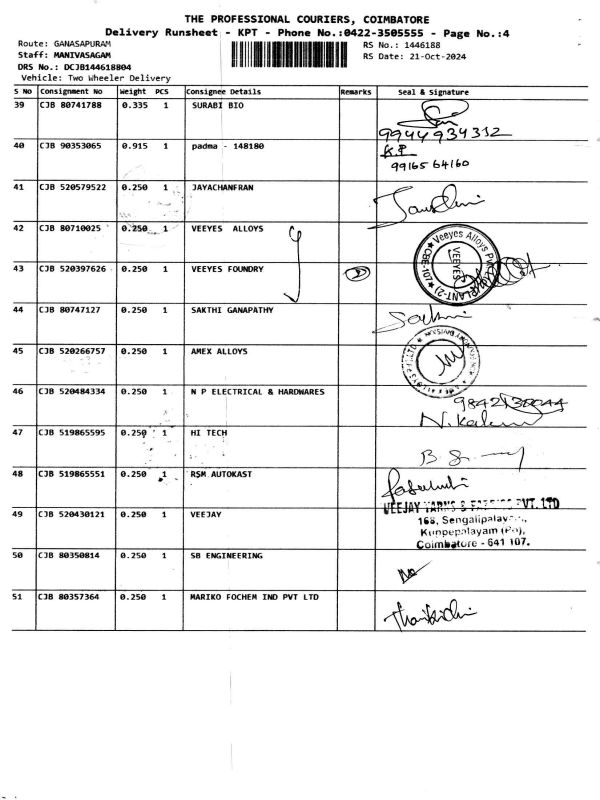 THE PROFESSIONAL COURIERS, COIMBATORE
Delivery Runsheet - KPT - Phone No.:0422-3505555 - Page No.:4
Route: GANASAPURAM
RS No.: 1446188
Staff: MANIVASAGAM
RS Date: 21-Oct-2024
DRS No.: DCJB144618804
Vehicle: Two Wheeler Delivery
S No Consignment No Weight PCS Consignee Details Remarks Seal & Signature
39 CJB 80741788 0.335 1 SURABI BIO
9944934312
40 CJB 90353065 0.915 1 padma - 148180 K.P
99165 64160
41 CJB 520579522 0.250 1 JAYACHANFRAN
42 CJB 80710025 0.250 1 VEEYES ALLOYS
Veeyes Alloys
VEEYES
43 CJB 520397626 0.250 1 VEEYES FOUNDRY 2
44 CJB 80747127 0.250 1 SAKTHI GANAPATHY
45 CJB 520266757 0.250 1 AMEX ALLOYS
46 CJB 520484334 0.250 1 N P ELECTRICAL & HARDWARES
47 CJB 519865595 0.250 1 HI TECH
48 CJB 519865551 0.250 1 RSM AUTOKAST
VEEJAY YARNS & FABRICS PVT. LTD
49 CJB 520430121 0.250 1 VEEJAY
168, Sengalipalayam,
Kunnepalayam (Po),
Coimbatore - 641 107.
50 CJB 80350814 0.250 1 SB ENGINEERING
51 CJB 80357364 0.250 1 MARIKO FOCHEM IND PVT LTD